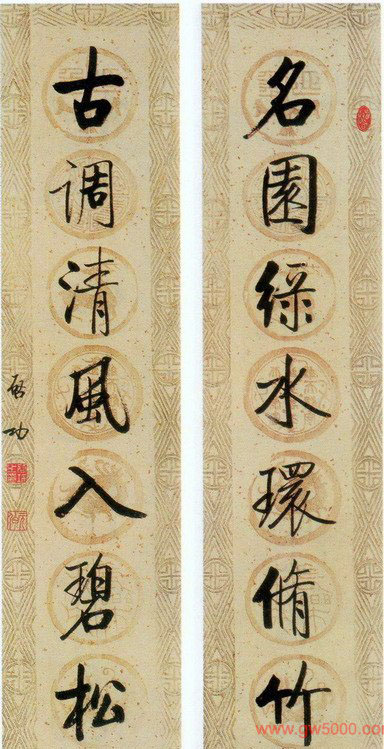 名園綠水環脩竹
古調清風入碧松
啓功
www.gw5000.com